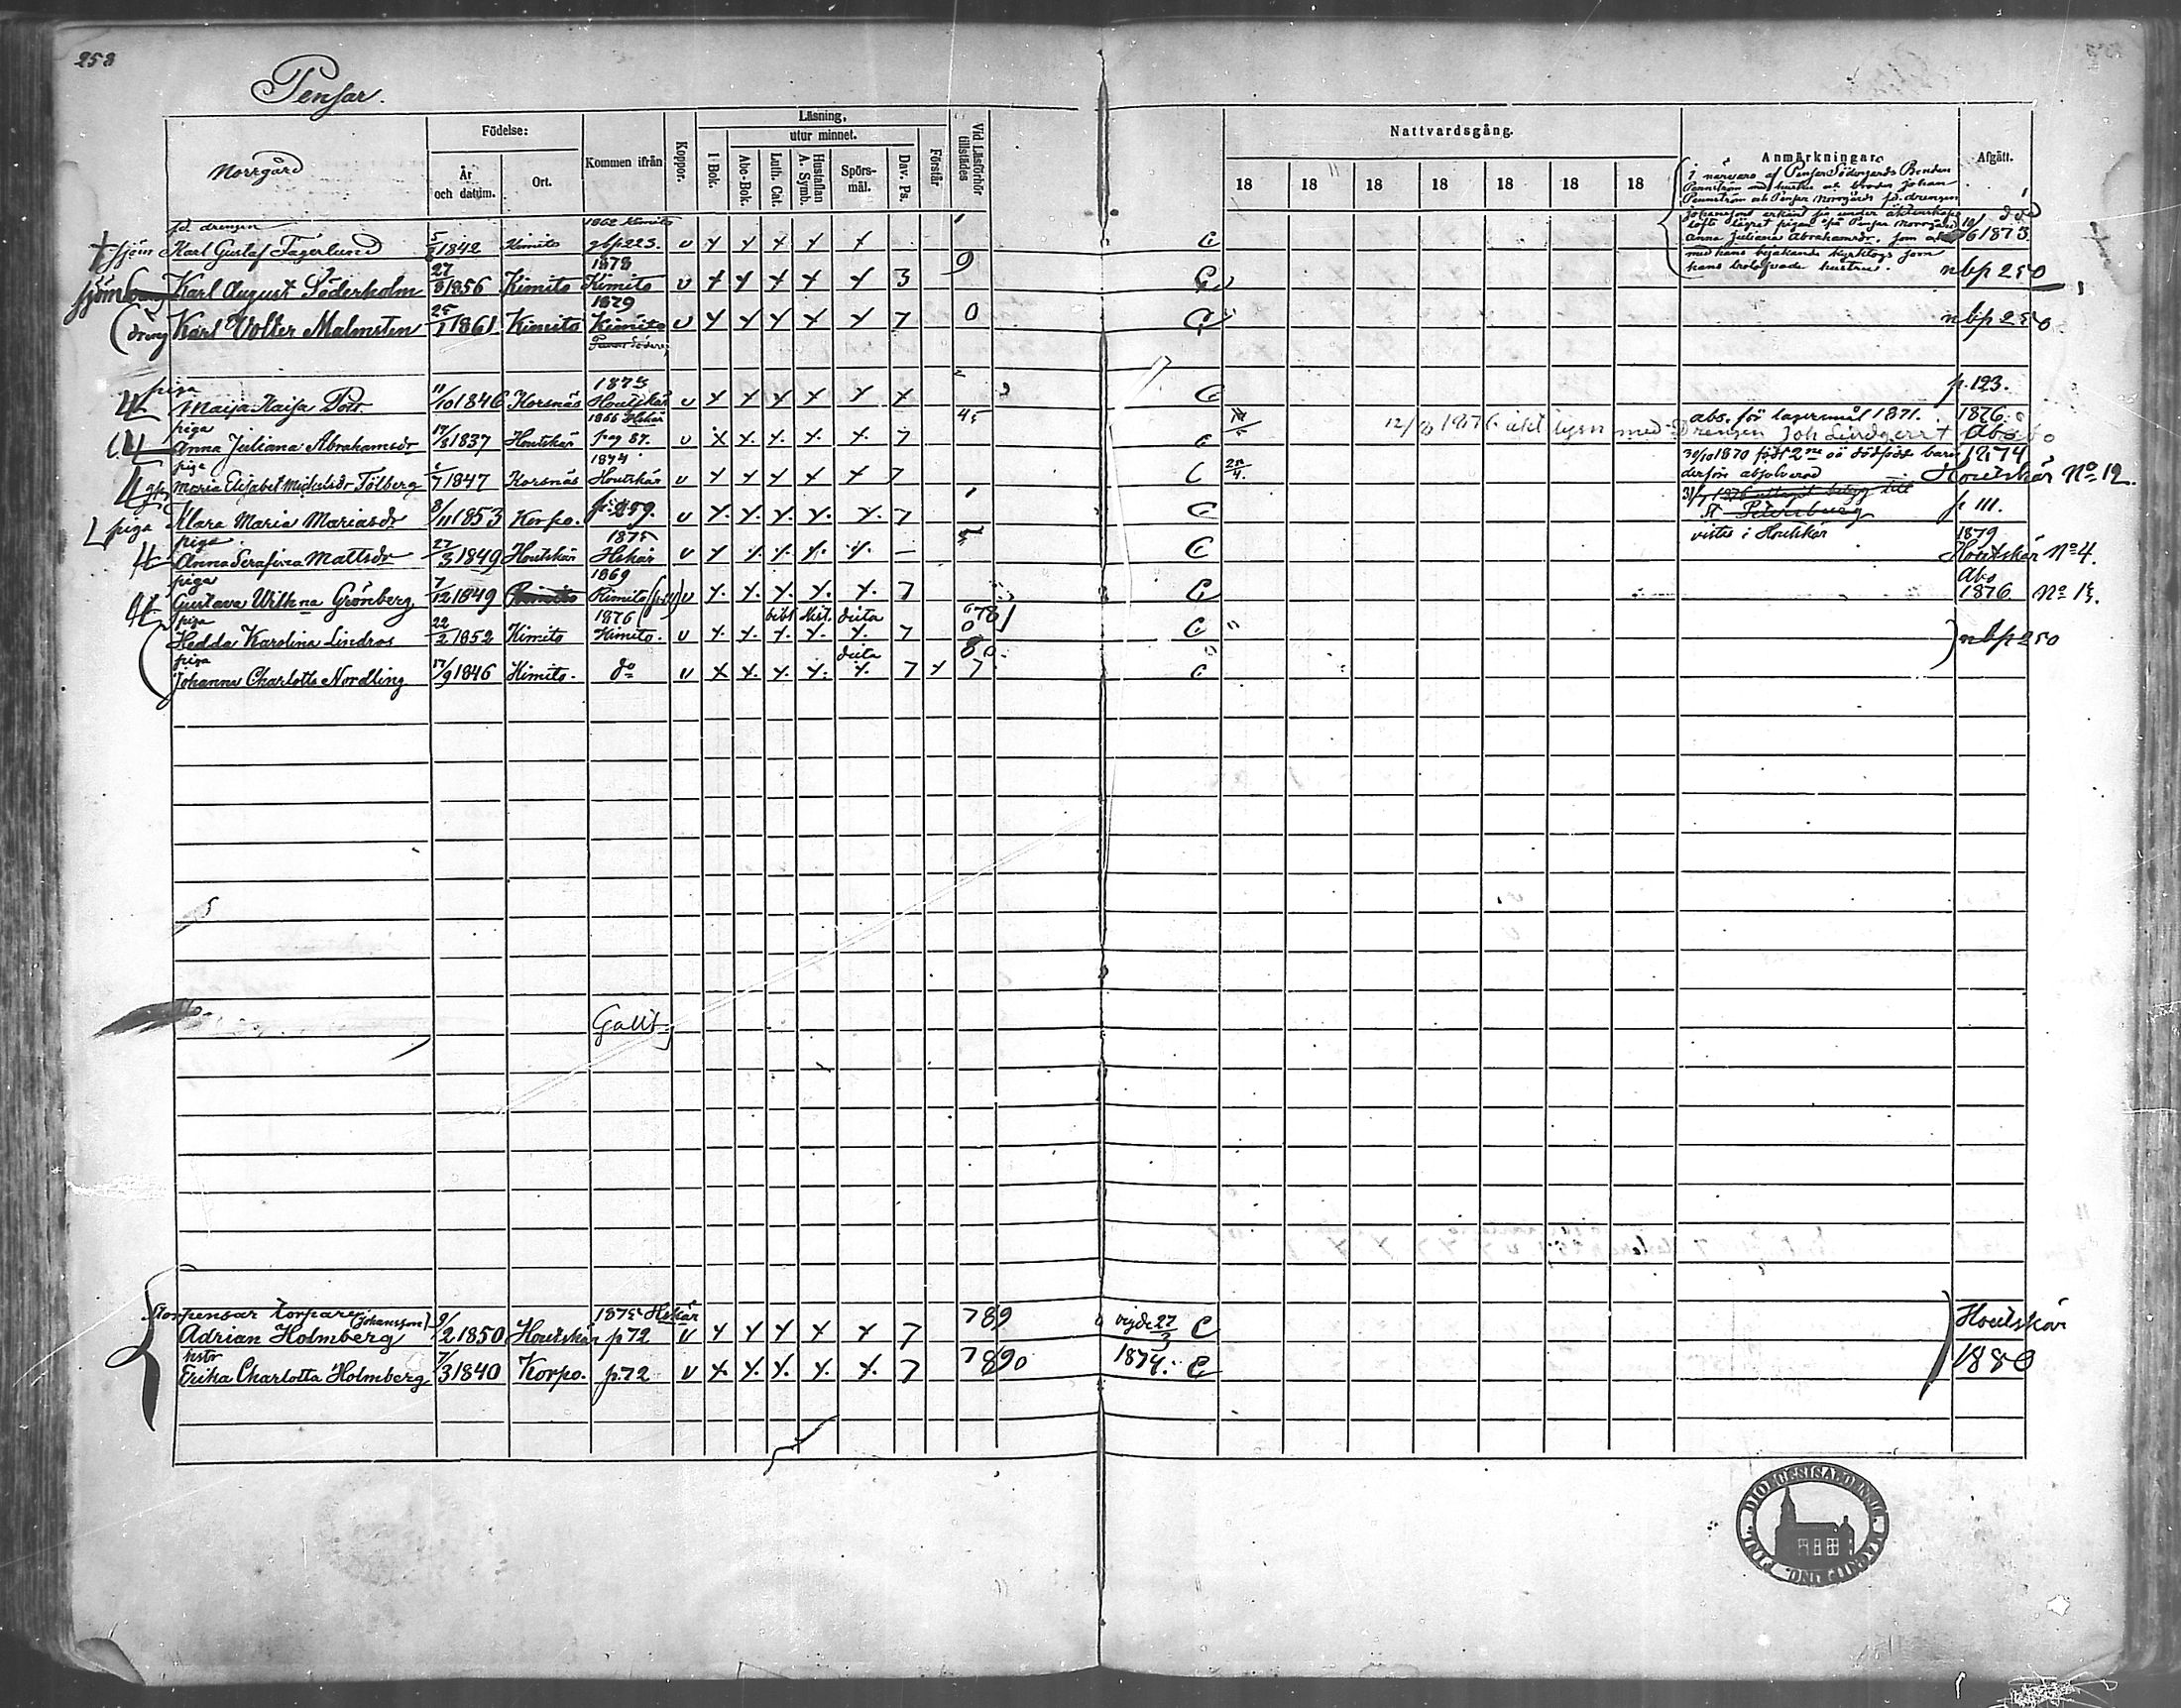 258
Pensar.
Norrgård
Födelse:
År och datum.
Ort.
Kommen ifrån
Koppor.
Läsning,
I Bok.
utur minnet.
Abc-Bok.
Luth. Cat.
Hustaflan A. Symb.
Spörs-mål.
Dav. Ps.
Förstår
Vid Läsförhör tillstädes
Nattvardsgång.
18 18 18 18 18 18 18
Anmärkningar.
Afgått.
fd. drengen 1862 Kimito
sjöm Karl Gustaf Fagerlund 1842 Kimito p 223. v x x x x x C död 1873
i närvaro af Pensar Södergårds Bonden
med hustru och broder Johan
och Pensar Norrgårds fd. drengen
erkänt sig under äktenskaps
löfte lägrat pigan på Pensar Norrgård
Anna Juliana Abrahamsdr. som
med hans bejakande kyrktogs som
hans trolofvade hustru.
1878 9
sjöm Karl August Söderholm 27/8 1856 Kimito Kimito v x x x x x 3 C nbp 250
1879
dreng Karl Volter Malmsten 25/1 1861 Kimito Kimito v x x x x x 7 0 C nbp 250
piga 1873
Maija Kaisa 11/10 1846 Korsnäs Houtskär v x x x x x x C p. 123.
piga 1866 Hskär 45
Anna Juliana Abrahamsdr 17/3 1837 Houtskär pag 87. v x x x x x 7 C abs. för lägersmål 1871. 1876 Åbo
12/8 1876 äkt lysn med Drengen Joh Lindqvist
piga 1874
Maria Elisabet Michelsdr Fölberg 6/7 1847 Korsnäs Houtskär v x x x x x 7 C 30/10 1870 födt 2ne oä dödfödt barn 1874
derför absolverad Houtskär No 12.
piga Klara Maria Mariasdr 8/11 1853 Korpo. p. 259. v x x x x x 7 C 1876 uttagit betyg till St Petersburg p 111.
piga 1875
Anna Serafina Mattsdr 27/3 1849 Houtskär Hskär v x x x x x – C vistas i Houtskär 1879 Houtskär No 4.
piga 1869
Gustava Vilhna Grönberg 7/12 1849 Kimito Rimito v x x x x x 7 C Åbo 1876 No 13.
piga 1876 bibl hist. dito 678
Hedda Karolina Lindros 22/2 1852 Kimito Kimito. v x x x x x 7 C nbp 250
piga dito 80
Johanna Charlotta Nordling 17/9 1846 Kimito. do v x x x x x 7 x 7 C
Gallt
Storpensar torpare (Johansson) 1875 Hskär 789
Adrian Holmberg 9/2 1850 Houtskär p 72 v x x x x x 7 vigde 27/3 C Houtskär
hstr
Erika Charlotta Holmberg 7/3 1840 Korpo. p. 72 v x x x x x 7 7890 1874. C 1880